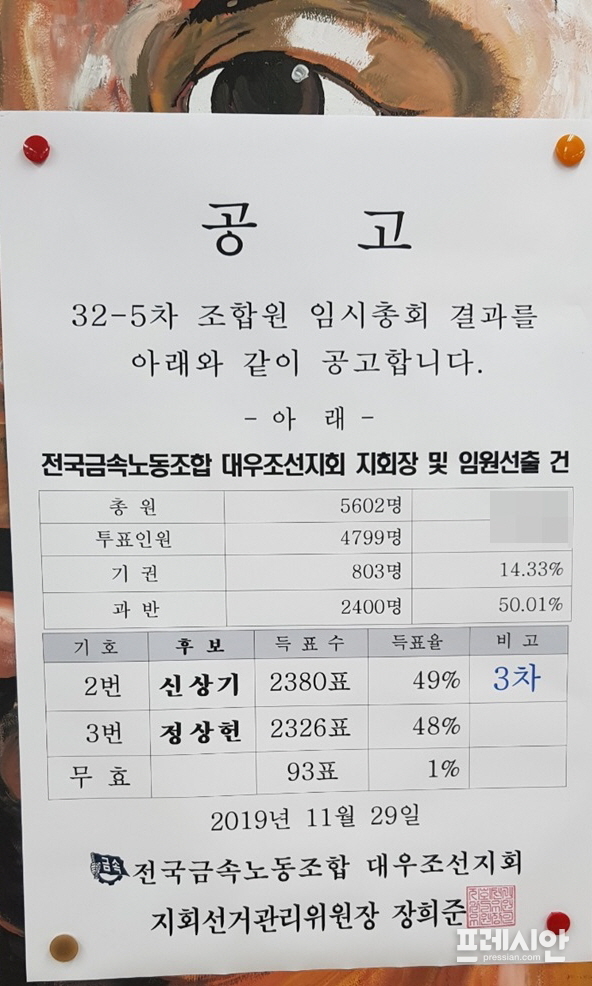 공 고
32-5차 조합원 임시총회 결과를
아래와 같이 공고합니다.
- 아 래 -
전국금속노동조합 대우조선지회 지회장 및 임원선출 건
총 원 5602명
투표인원 4799명
기 권 803명 14.33%
과 반 2400명 50.01%
기 호 후 보 득 표 수 득표율 비 고
2번 신상기 2380표 49% 3차
3번 정상헌 2326표 48%
무 효 93표 1%
2019년 11월 29일
금속 전국금속노동조합 대우조선지회
지회선거관리위원장 장희준
프레시안
pressian.com